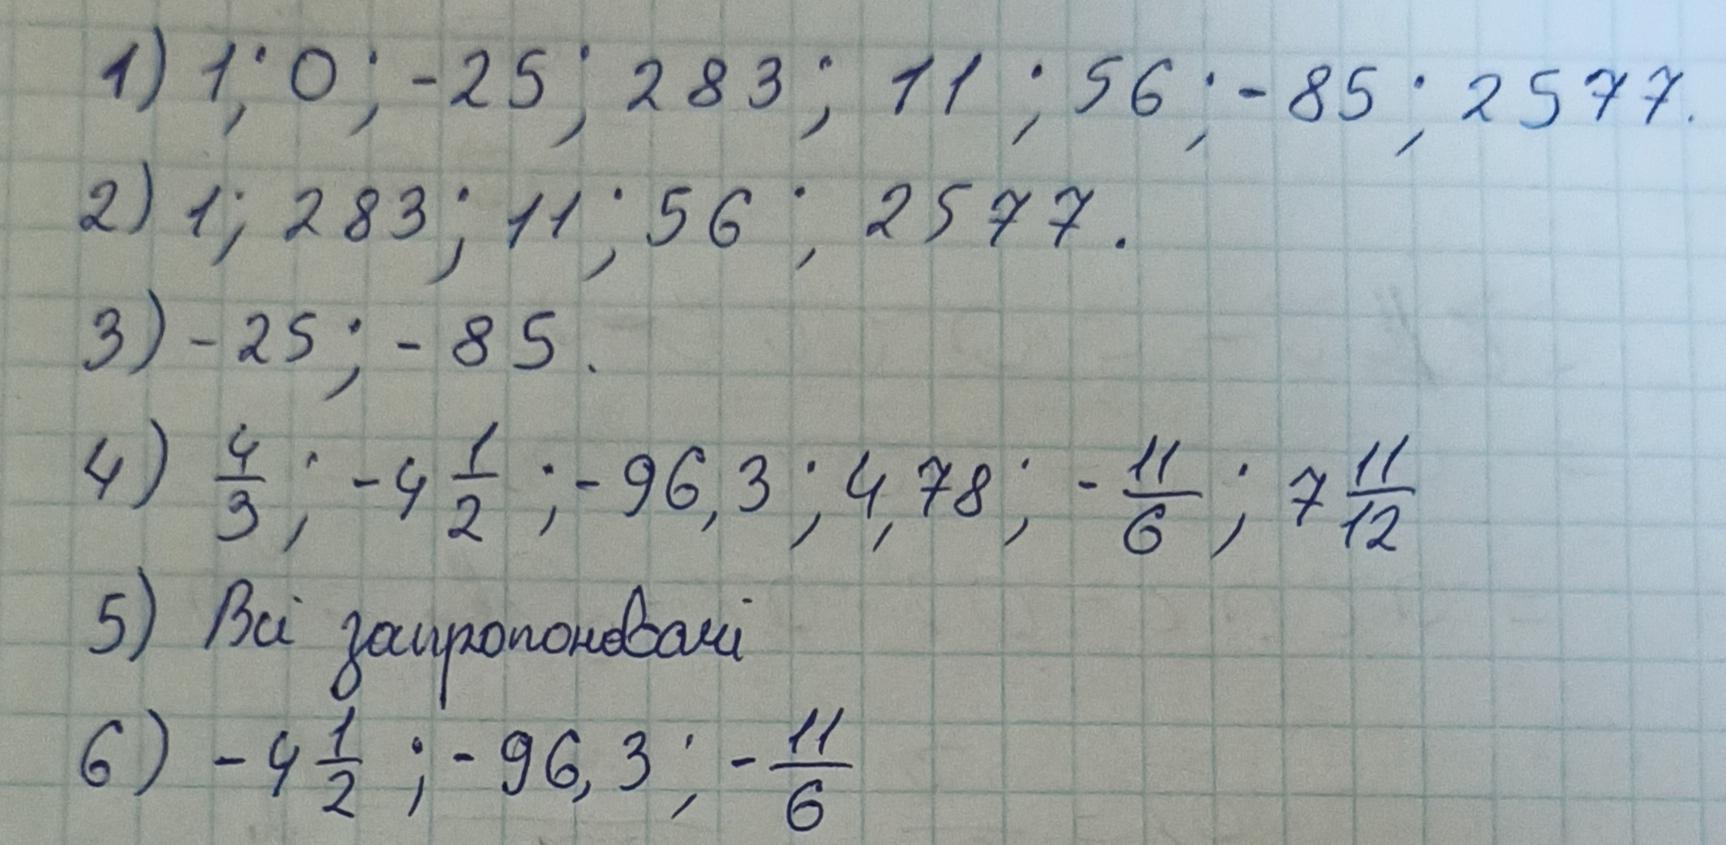 1) 1; 0; -25; 283; 11; 56; -85; 2577.
2) 1; 283; 11; 56; 2577.
3) -25; -85.
4) 4/3; -4 1/2; -96,3; 4,78; -11/6; 7 11/12
5) Всі запропоновані
6) -4 1/2; -96,3; -11/6